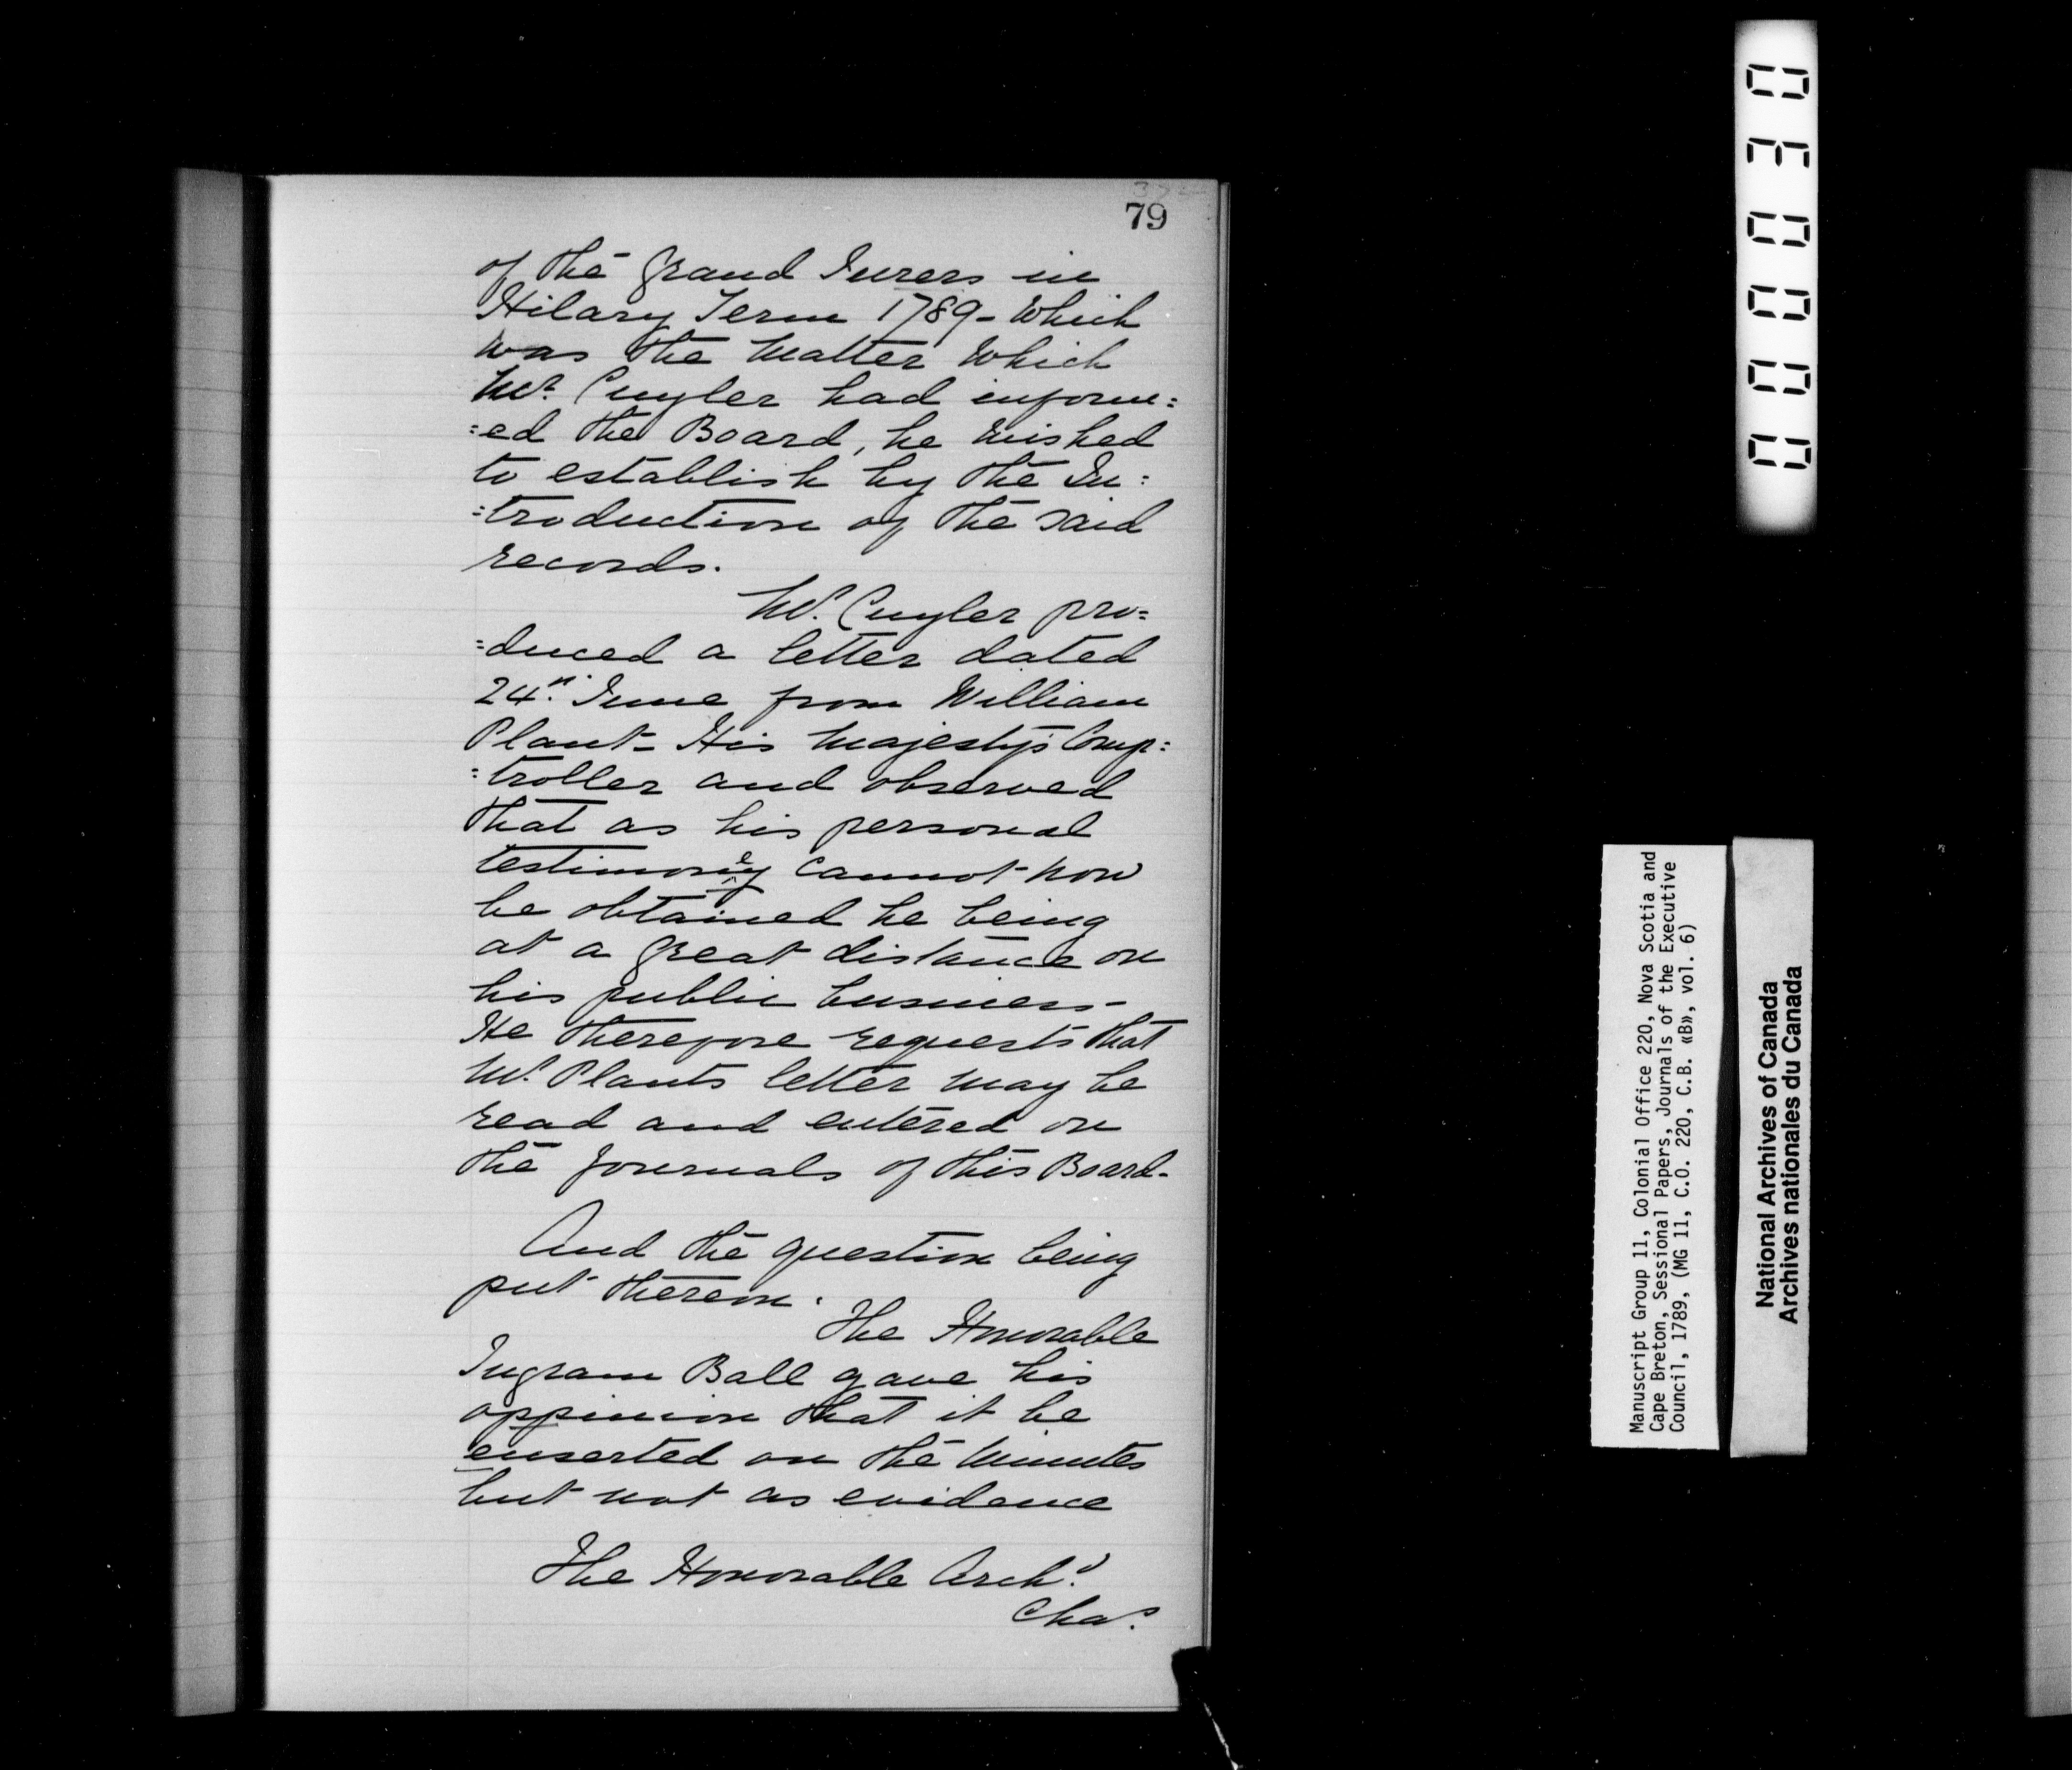 79
of the Grand Jurers in
Hilary Term 1789 - Which
was the Matter Which
Mr. Cuyler had inform=
=ed the Board, he wished
to establish by the In=
=troduction of the said
records.
Mr. Cuyler pro=
=duced a letter dated
24th. June from William
Plant - His Majesty's Comp=
=troller and observed
that as his personal
testimoney cannot now
be obtained he being
at a great distance on
his public business -
He therefore requests that
Mr. Plants letter may be
read and entered on
the Journals of this Board -
And the question being
put thereon.
The Honorable
Ingram Ball gave his
oppinion that it be
enserted on the Minutes
but not as evidence
The Honorable Archd.
Chas.
000030
Manuscript Group 11, Colonial Office 220, Nova Scotia and
Cape Breton, Sessional Papers, Journals of the Executive
Council, 1789, (MG 11, C.O. 220, C.B. «B», vol. 6)
National Archives of Canada
Archives nationales du Canada